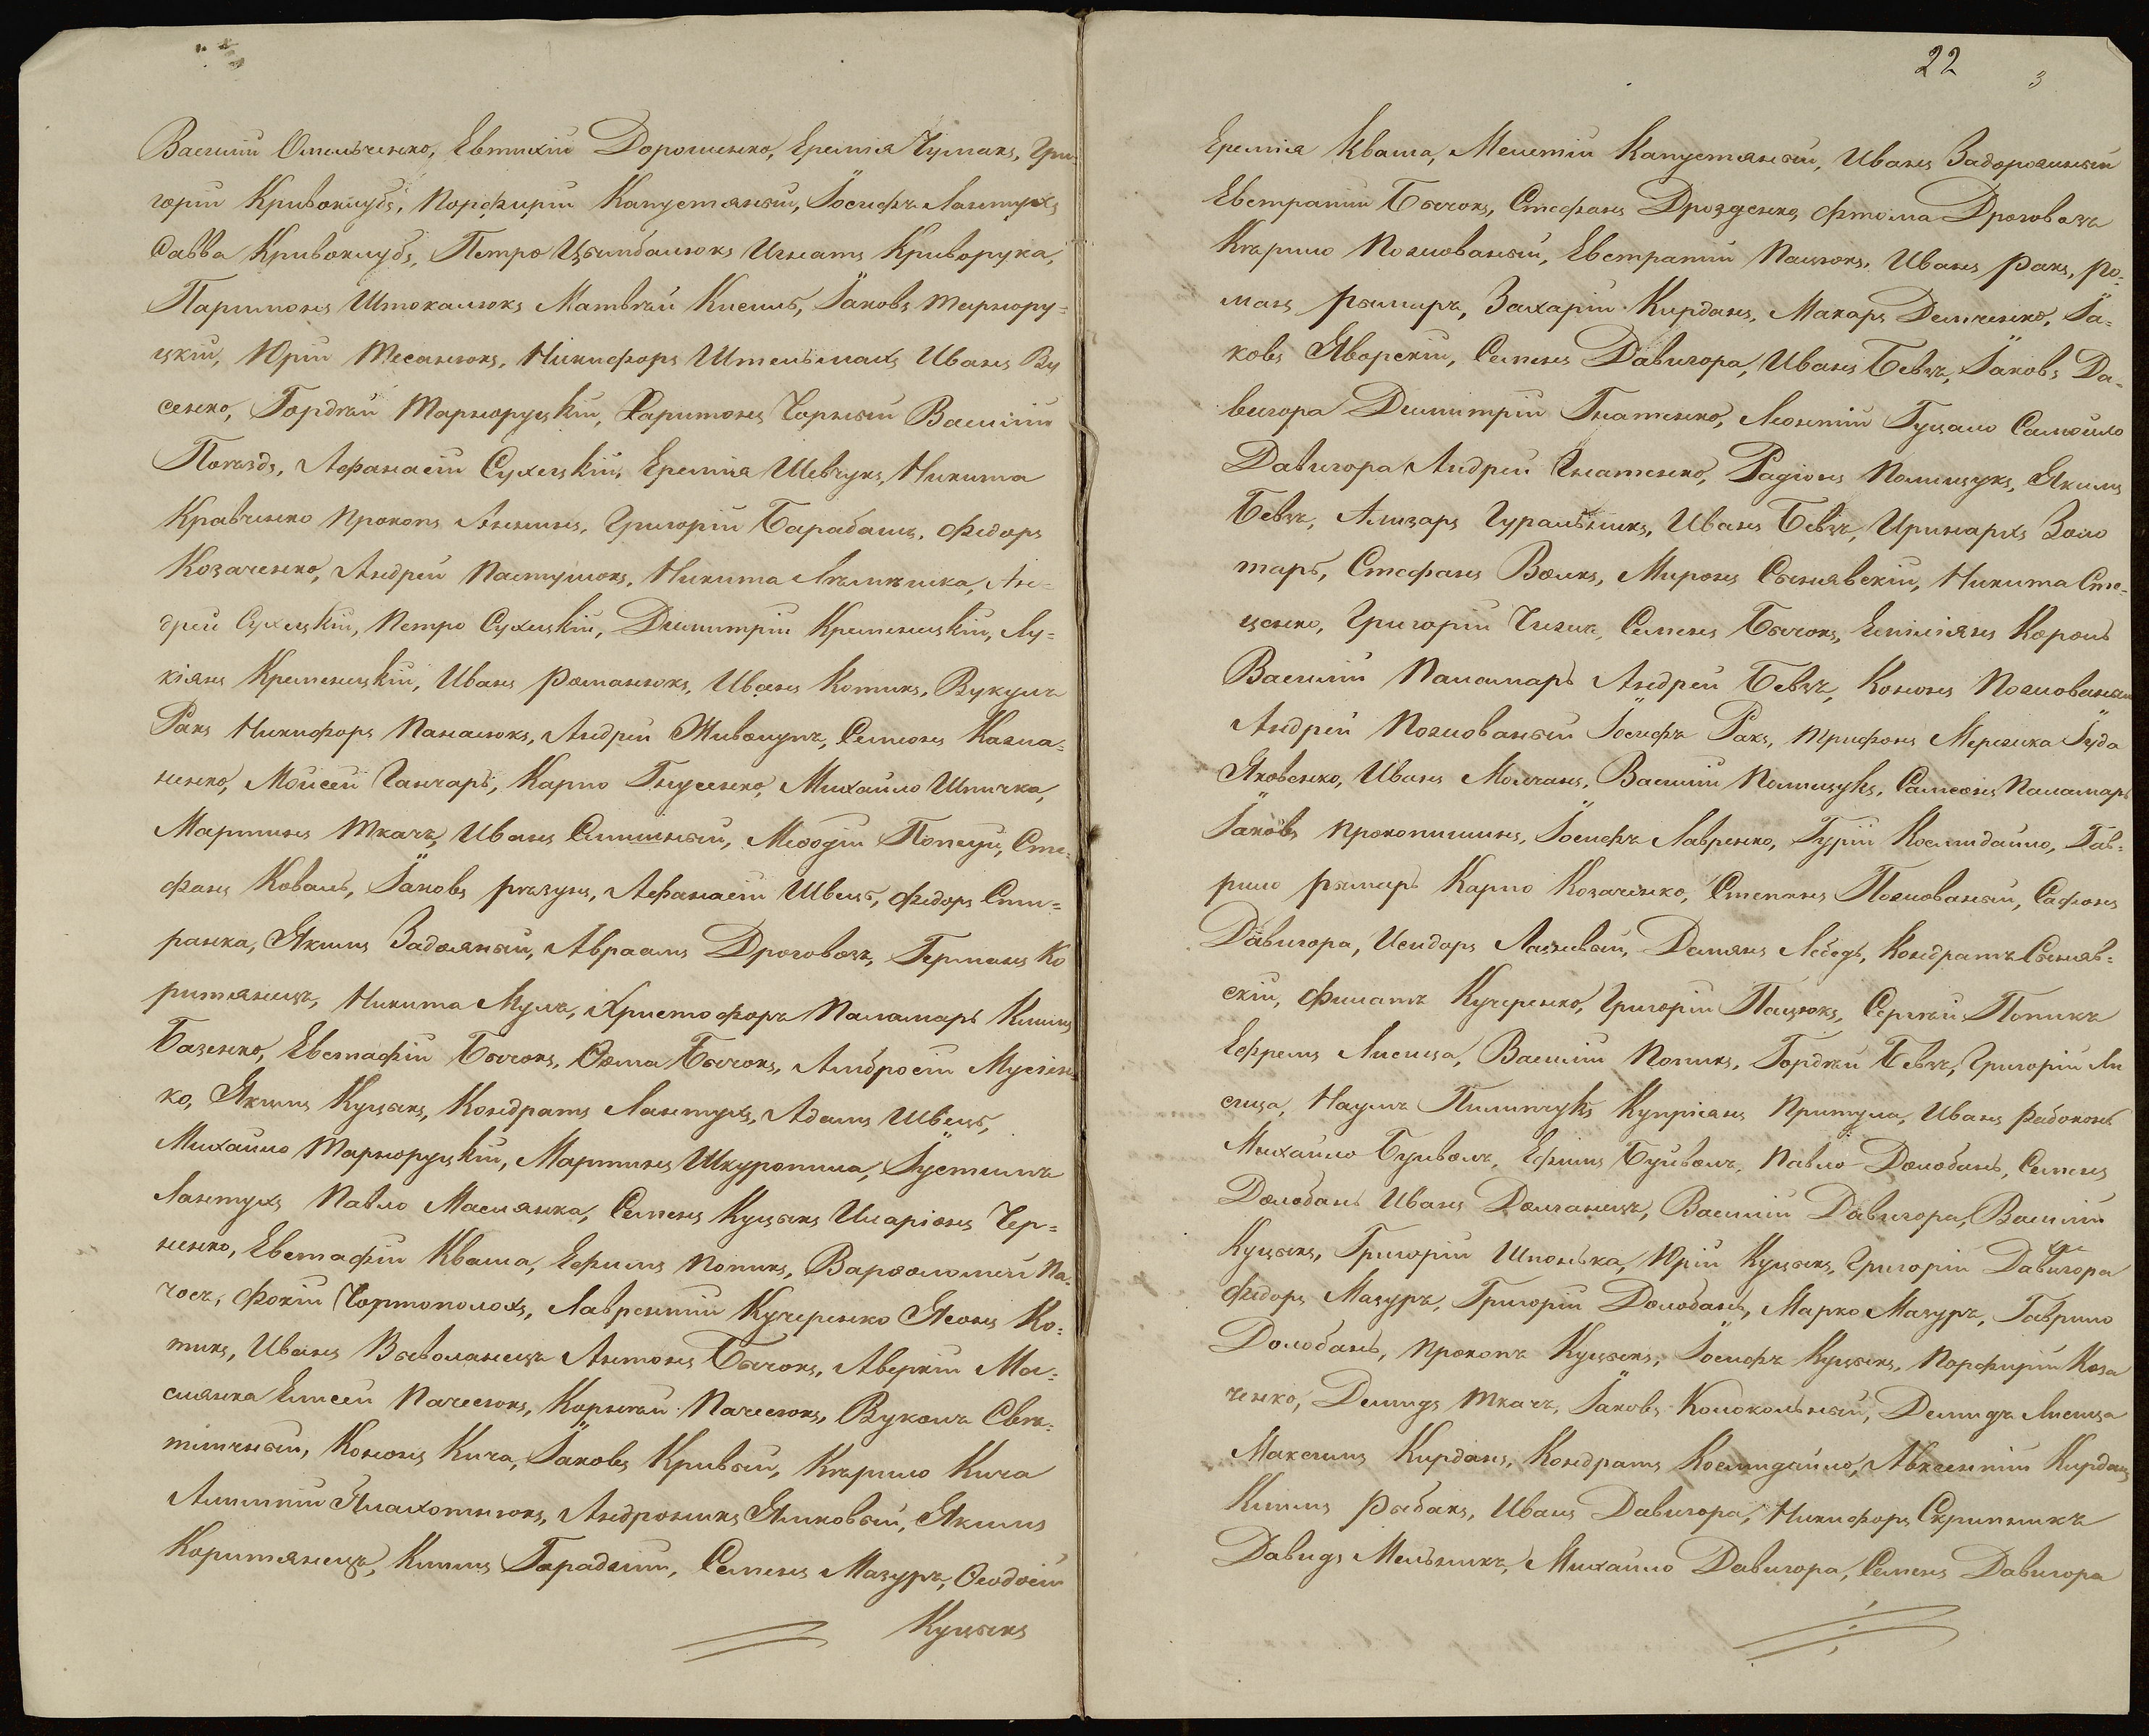 Василій Омельченко, Евтихій Дорошенко, Еремія Чумакъ, Гри-
горій Кривоклубъ, Порфирій Капустяный, Іосифъ Лантухъ
Савва Кривоклубъ, Петро Цымбалюкъ Игнатъ Криворука,
Паримонъ Штокалюкъ Матвѣй Кисиль, Іаковъ Тарнору=
цкій, Юрій Тесанюкъ, Никифоръ Штельмахъ Иванъ Ву
сенко, Гордѣй Тарноруцкій, Харитонъ Чорный Василій
Поѣздъ, Афанасій Сухецкій, Еремія Шевчукъ, Никита
Кравченко Прокопъ Аннинъ, Григорій Барабашъ, Федоръ
Козаченко, Андрей Пастушокъ, Никита Ан-
дрей Сухецкій, Петро Сухецкій, Димитрій Кременецкій, Лу=
кіянъ Кременецкій, Иванъ Романюкъ, Иванъ Котикъ, Вукулъ
Ракъ Никифоръ Панасюкъ, Андрей Живолупъ, Семіонъ Касіа=
ненко, Мойсей Ганчаръ, Карпо Гнусенко, Михайло Шпичка,
Мартинъ Ткачъ, Иванъ Смишный, Меѳодій Попецъ, Сте=
фанъ Коваль, Іаковъ рѣзунъ, Афанасій Швець, Федоръ Сти=
ранка, Якимъ Задояный, Авраамъ Дроговозъ, Германъ Ко
ритянецъ, Никита Мулъ, Христофоръ Паламарь Климъ
Базенко, Евстафій Бычокъ, Ѳома Бычокъ, Амбросій Мусіен=
ко, Якимъ Куцыкъ, Кондратъ Лантухъ, Адамъ Швець,
Михайло Тарноруцкій, Мартинъ Шкуропила, Іустимъ
Лантухъ Павло Маслянка, Семенъ Куцыкъ Иларіонъ Чер=
ненко, Евстафій Кваша, Ефимъ Попикъ, Варѳоломей Па-
чосъ, Фокій Чортополохъ, Лаврентій Кучеренко Ясонъ Ко=
тикъ, Иванъ Выволанецъ Антонъ Бычокъ, Аверкій Ма=
слянка Елисей Пачесюкъ, Корнѣй Пачесюкъ, Вуколъ Свѣ-
тличный, Кононъ Кича, Іаковъ Кривый, Кѣрило Кича
Алимпій Плахотнюкъ, Андроникъ Ялковый, Якимъ
Коритянецъ, Климъ Горадзій, Семенъ Мазуръ, Ѳеодосій
Куцыкъ
22 3
Еремія Кваша, Мелетій Капустяный, Иванъ Задорожный
Евстратій Бычокъ, Стефанъ Дрозденко, Фтома Дроговозъ
Кѣрило Полюваный, Евстратій Пацюкъ, Иванъ Ракъ, Ро=
манъ рымарь, Захарій Кирданъ, Макаръ Демченко, Іа=
ковъ Яворскій, Семенъ Давигора, Иванъ Бевзъ, Іаковъ Да-
вигора Димитрій Гнатенко, Леонтій Гуцало Самойло
Давигора Андрей Гнатенко, Радіонъ Полищукъ, Якимъ
Бевзъ, Ализаръ Гуральникъ, Иванъ Бевзъ, Иринархъ Золо
тарь, Стефанъ Волкъ, Миронъ Сынявскій, Никита Сте-
ценко, Григорій Чигиъ, Семенъ Бычокъ, Емиліянъ Король
Василій Паламарь Андрей Бевзъ, Кононъ Полюваный
Андрей Полюваный Іосифъ Ракъ, Трифонъ Мережка Іуда
Яковенко, Иванъ Молчанъ, Василій Полищукъ, Самсонъ Паламарь
Іаковъ Прокопишинъ, Іосифъ Лавренко, Гурій Космидайло, Гав=
рило рымарь Карпо Козаченко, Степанъ Полюваный, Сафонъ
Давигора, Исидоръ Лацевый, Демянъ Лебедь, Кондратъ Сыняв=
скій, Филатъ Кучеренко, Григорій Пацюкъ, Сергѣй Попикъ
Ефремъ Лисица, Василій Попикъ, Гордѣй Бевзъ, Григорій Ли
сица, Наумъ Пилипчукъ Купріянъ Притула, Иванъ Рабоконь
Михайло Буйволъ, Ефимъ Буйволъ, Павло Долобанъ, Семенъ
Долобанъ Иванъ Долганецъ, Василій Давигора, Василій
Куцыкъ, Григорій Шпонька, Юрій Куцыкъ, Григорій Давигора
Федоръ Мазуръ, Григорій Долобанъ, Марко Мазуръ, Гаврило
Долобанъ, Прокопъ Куцыкъ, Іосифъ Куцыкъ, Порфирій Коза
ченко, Демидъ Ткачъ, Іаковъ Колокольный, Демидъ Лисица
Максимъ Кирданъ, Кондратъ Космидайло, Авксентій Кирданъ
Климъ Рыбакъ, Иванъ Давигора, Никифоръ Скрипникъ
Давидъ Мельникъ, Михайло Давигора, Семенъ Давигора